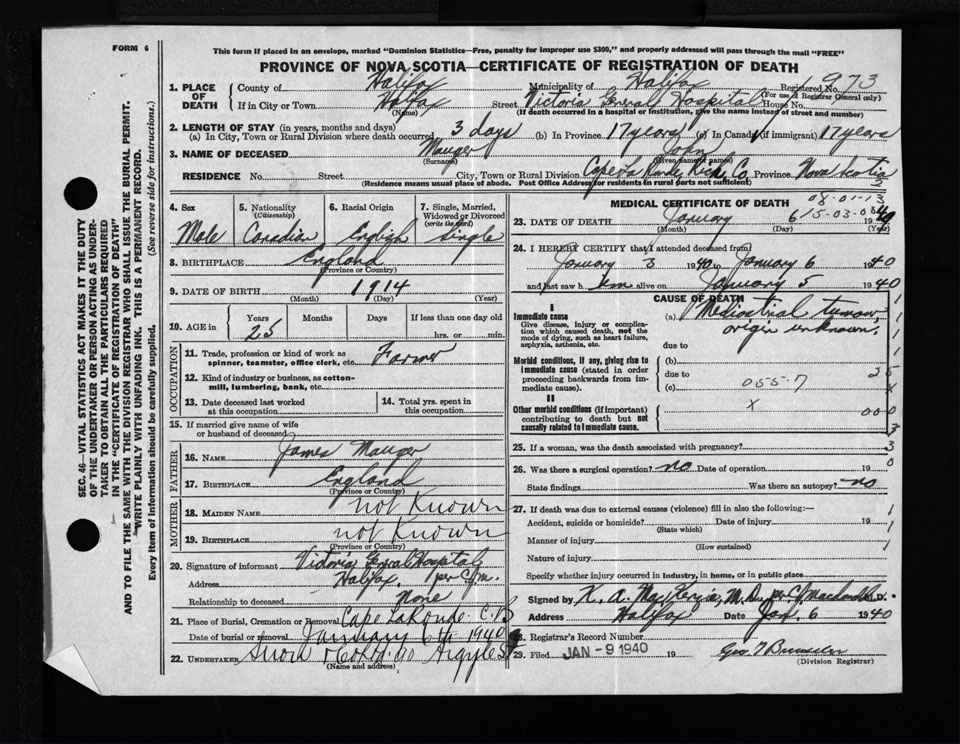 FORM 6
This form if placed in an envelope, marked "Dominion Statistics—Free, penalty for improper use $300," and properly addressed will pass through the mail "FREE"
PROVINCE OF NOVA SCOTIA—CERTIFICATE OF REGISTRATION OF DEATH
SEC. 46—VITAL STATISTICS ACT MAKES IT THE DUTY
OF THE UNDERTAKER OR PERSON ACTING AS UNDER-
TAKER TO OBTAIN ALL THE PARTICULARS REQUIRED
IN THE "CERTIFICATE OF REGISTRATION OF DEATH"
AND TO FILE THE SAME WITH THE DIVISION REGISTRAR WHO SHALL ISSUE THE BURIAL PERMIT.
WRITE PLAINLY WITH UNFADING INK. THIS IS A PERMANENT RECORD.
Every item of information should be carefully supplied. (See reverse side for instructions.)
1. PLACE OF DEATH
County of Halifax Municipality of Halifax Registered No. 973
(For use of Registrar General only)
If in City or Town Halifax Street Victoria General Hospital House No.
(Name) (If death occurred in a hospital or institution, give the name instead of street and number)
2. LENGTH OF STAY (in years, months and days)
(a) In City, Town or Rural Division where death occurred 3 days (b) In Province 17 years (c) In Canada (if immigrant) 17 years
3. NAME OF DECEASED Mauger John
(Surname) (Given name or names)
RESIDENCE No. Street City, Town or Rural Division Cape La Ronde, Rich. Co. Province Nova Scotia
(Residence means usual place of abode. Post Office Address for residents in rural parts not sufficient)
4. Sex Male
5. Nationality (Citizenship) Canadian
6. Racial Origin English
7. Single, Married, Widowed or Divorced (write the word) Single
8. BIRTHPLACE England
(Province or Country)
9. DATE OF BIRTH 1914
(Month) (Day) (Year)
10. AGE in Years Months Days If less than one day old
25 hrs. or min.
OCCUPATION
11. Trade, profession or kind of work as spinner, teamster, office clerk, etc. Farmer
12. Kind of industry or business, as cotton-mill, lumbering, bank, etc.
13. Date deceased last worked at this occupation
14. Total yrs. spent in this occupation
15. If married give name of wife or husband of deceased
FATHER
16. Name James Mauger
17. Birthplace England
(Province or Country)
MOTHER
18. Maiden Name not Known
19. Birthplace not Known
(Province or Country)
20. Signature of informant Victoria General Hospital
Address Halifax per C.J.M.
Relationship to deceased None
21. Place of Burial, Cremation or Removal Cape LaRonde C.B
Date of burial or removal January 6th 1940
22. Undertaker Snow & Co Ltd. 90 Argyle St
(Name and address)
MEDICAL CERTIFICATE OF DEATH
08-01-13
23. DATE OF DEATH January 6 1940
(Month) (Day) (Year)
24. I HEREBY CERTIFY that I attended deceased from
January 3 1940 to January 6 1940
and last saw him alive on January 5 1940
CAUSE OF DEATH
I
Immediate cause
Give disease, injury or complication which caused death, not the mode of dying, such as heart failure, asphyxia, asthenia, etc.
(a) Mediastinal tumour,
origin unknown.
due to
Morbid conditions, if any, giving rise to immediate cause (stated in order proceeding backwards from immediate cause).
(b)
due to
(c) 055-7
II
Other morbid conditions (if important) contributing to death but not causally related to immediate cause.
X
25. If a woman, was the death associated with pregnancy?
26. Was there a surgical operation? no Date of operation 19
State findings Was there an autopsy? no
27. If death was due to external causes (violence) fill in also the following:—
Accident, suicide or homicide? Date of injury 19
(State which)
Manner of injury
(How sustained)
Nature of injury
Specify whether injury occurred in industry, in home, or in public place
Signed by K. A. MacKenzie, M.D. per C J Macdonald M.D.
Address Halifax Date Jan. 6 1940
28. Registrar's Record Number
29. Filed JAN -9 1940 19
(Division Registrar)